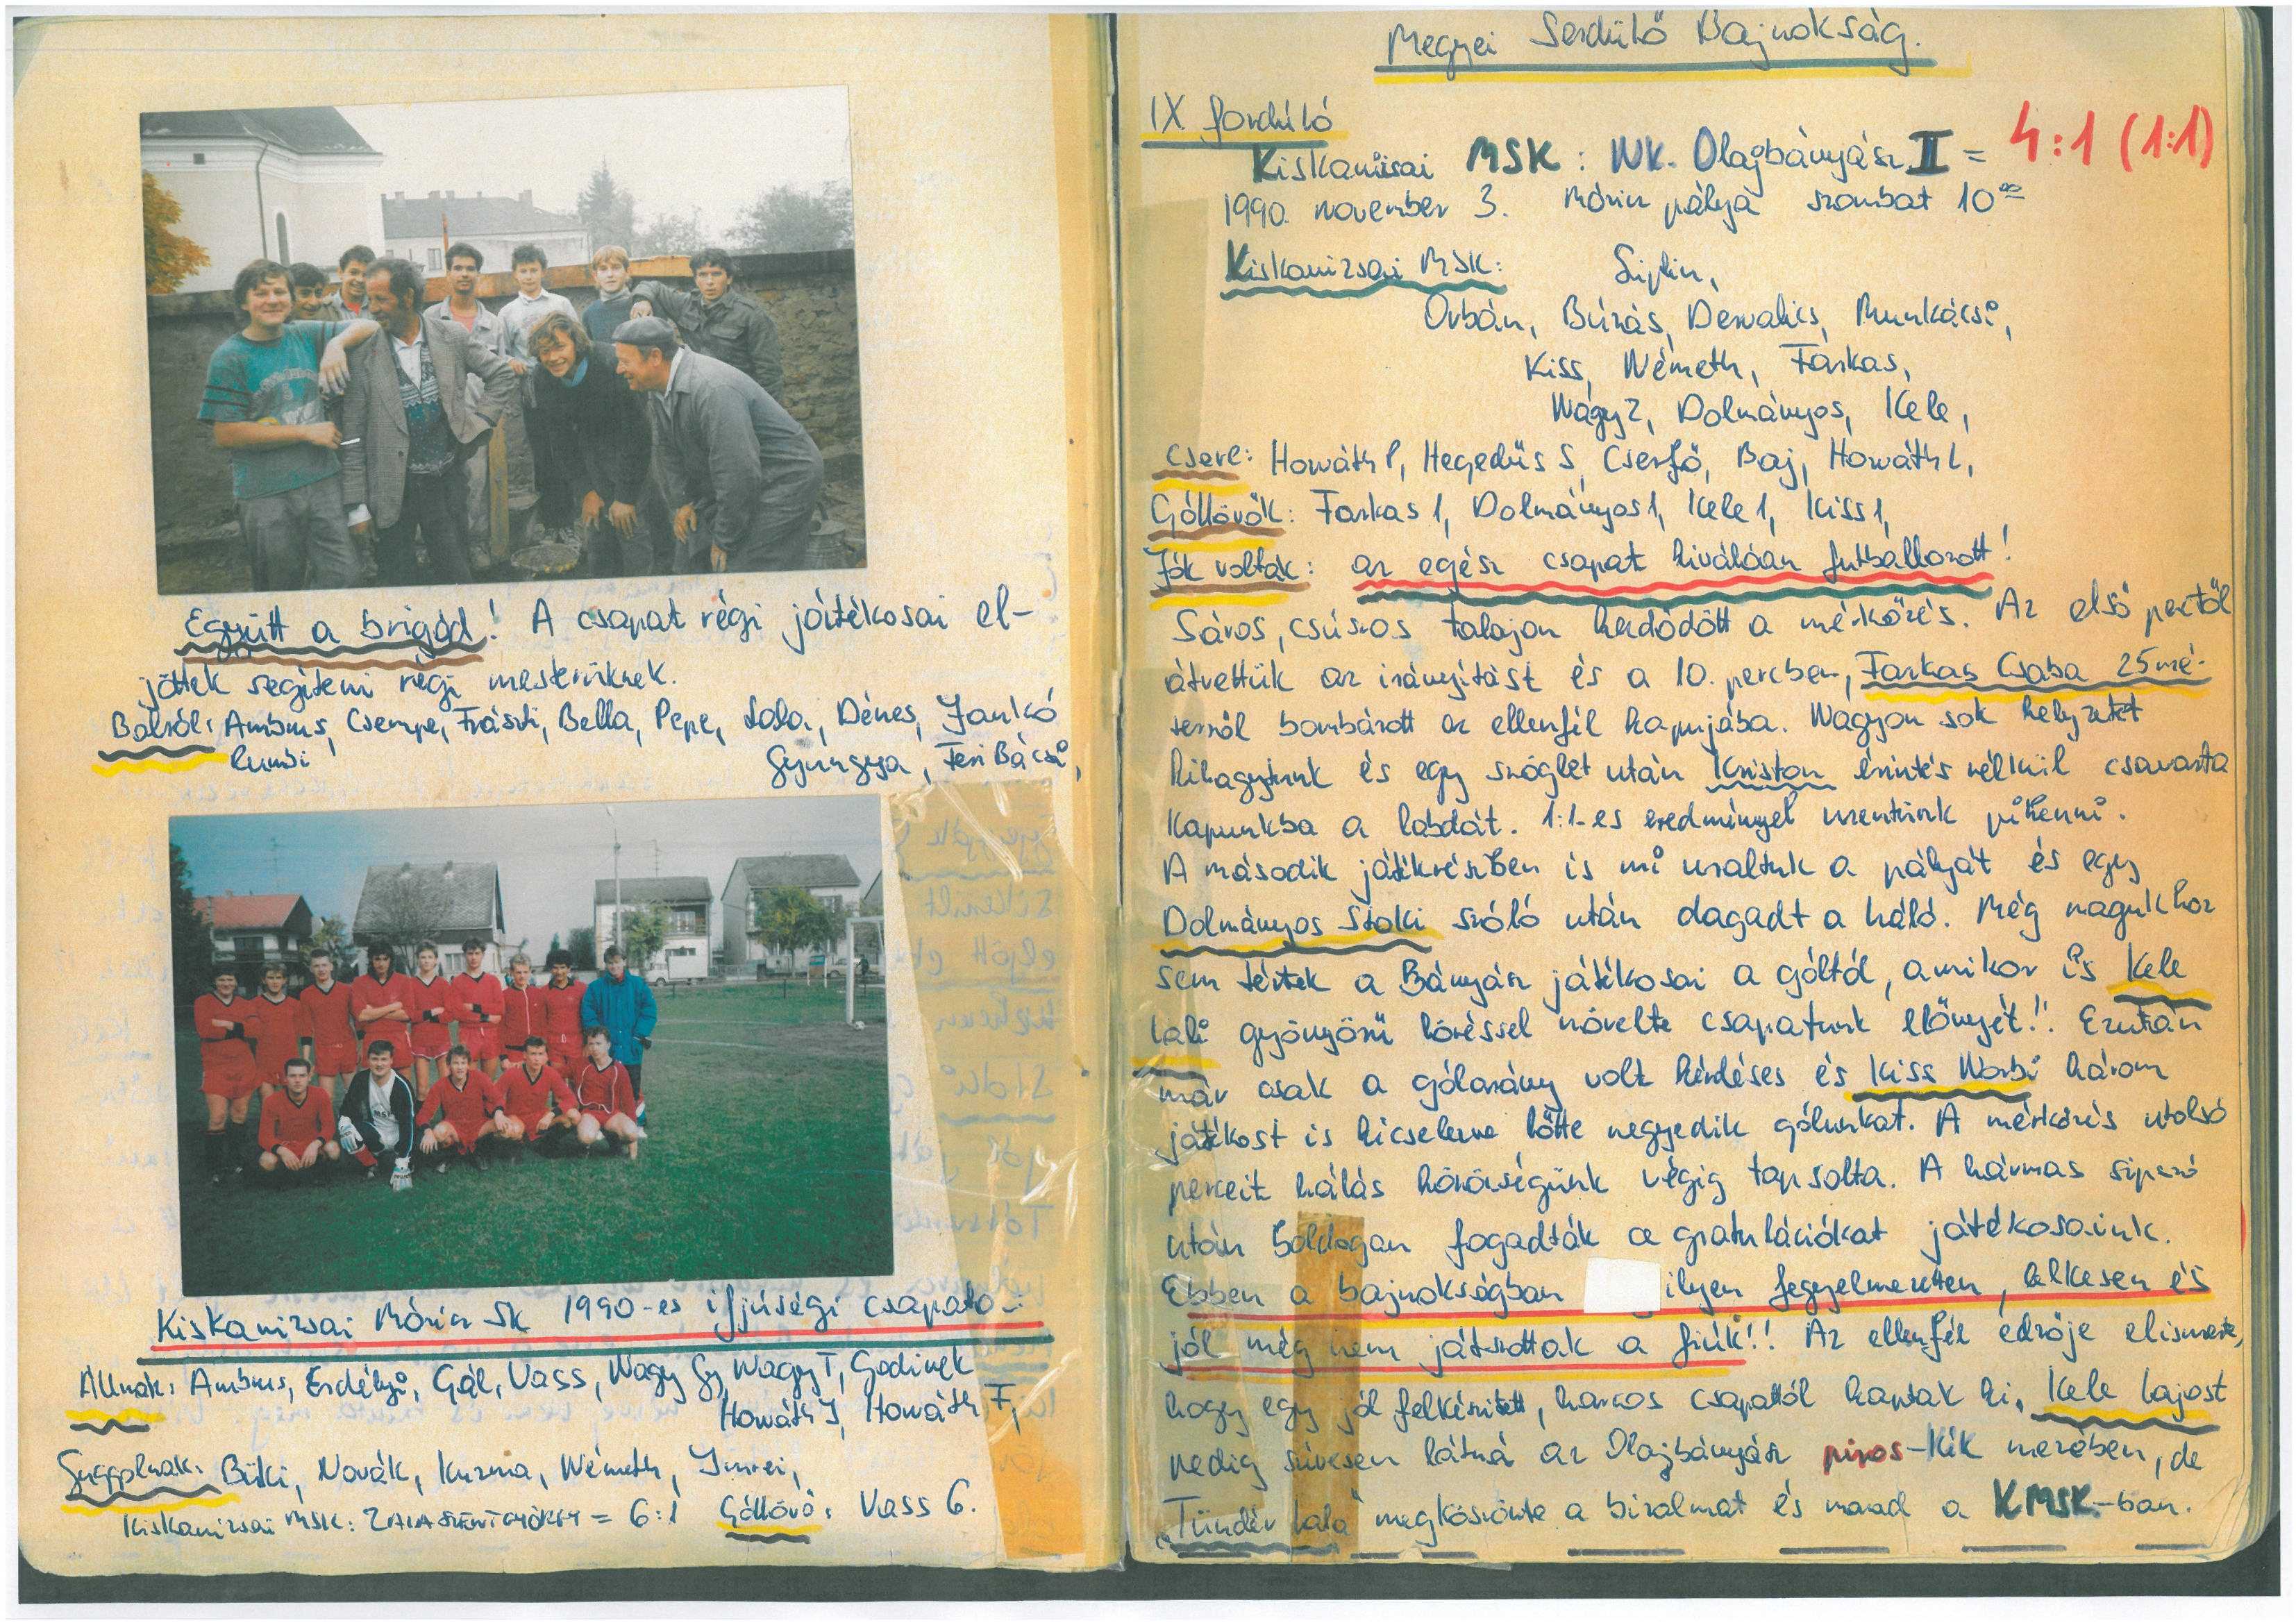 Együtt a brigád! A csapat régi játékosai el-
jöttek segíteni régi mesterüknek.
Balról: Ambrus, Csempe, Frászti, Bella, Pepe, Lala, Dénes, Jankó
Rumbi Gyurgya, Feri Bácsi,
Kiskanizsai Móricz SK 1990-es ifjúsági csapata:
Állnak: Ambrus, Erdélyi, Gál, Vass, Nagy Gy, Nagy T, Godinek
Horváth J, Horváth F,
Guggolnak: Büki, Novák, Kuzma, Németh, Imrei,
Kiskanizsai MSK: ZALASZENTGYÖRGY = 6:1 Góllövő: Vass 6.
Megyei Serdülő Bajnokság.
IX forduló
Kiskanizsai MSK : NK. Olajbányász II = 4:1 (1:1)
1990. november 3. Móricz pálya szombat 10°°
Kiskanizsai MSK: Siplin,
Orbán, Búzás, Dervalics, Munkácsi,
Kiss, Németh, Farkas,
Nagy Z, Dolmányos, Kele,
csere: Horváth P, Hegedüs S, Cserfő, Baj, Horváth L,
Góllövők: Farkas 1, Dolmányos 1, Kele 1, Kiss 1,
Jók voltak: az egész csapat kiválóan futballozott!
Sáros, csúszos talajon kezdödött a mérkőzés. Az első perctől
átvettük az irányítást és a 10. percben, Farkas Csaba 25 mé-
terről bombázott az ellenfél kapujába. Nagyon sok helyzetet
kihagytunk és egy szöglet után Kriston érintés nélkül csavarta
kapunkba a labdát. 1:1-es eredményel mentünk pihenni.
A második játékrészben is mi uraltuk a pályát és egy
Dolmányos Stoki szóló után dagadt a háló. Még magukhoz
sem tértek a Bányász játékosai a góltól, amikor is Kele
Lali gyönyörü lövéssel növelte csapatunk előnyét!. Ezután
már csak a gólarány volt kérdéses és Kiss Norbi három
játékost is kicselezve lőtte negyedik gólunkat. A mérkőzés utolsó
perceit hálás közönségünk végig tapsolta. A hármas sipszó
után boldogan fogadták a gratulációkat játékosaink.
Ebben a bajnokságban ilyen fegyelmezetten, lelkesen és
jól még nem játszottak a fiúk!! Az ellenfél edzője elismerte,
hogy egy jól felkészített, harcos csapattól kaptak ki, Kele Lajost
pedig szívesen látná az Olajbányász piros-kék mezében, de
"Tündér Lala" megköszönte a bizalmat és marad a KMSK-ban.